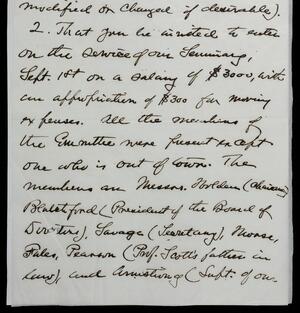 modified or changed if desirable).
2. That you be invited to enter
on the service of our Seminary,
Sept. 1st on a salary of $3000, with
an appropriation of $300 for moving
expenses. All the members of
the Committee were present except
one who is out of town. The
members are Messrs. Holden (Chairman)
Blatchford (President of the Board of
Directors), Savage (Secretary), Morse,
Fales, Pearson (Prof. Scott's father in
law), and Armstrong (Supt. of our